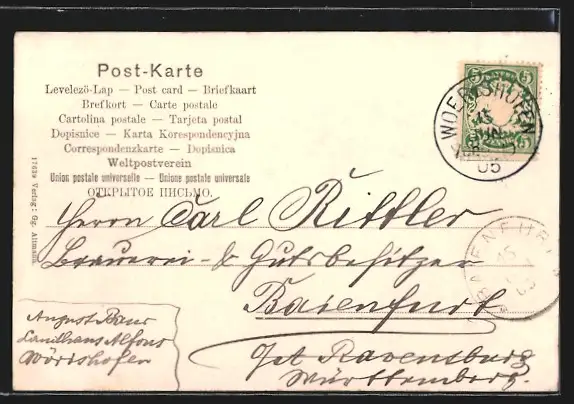 Post-Karte
Levelező-Lap — Post card — Briefkaart
Brefkort — Carte postale
Cartolina postale — Tarjeta postal
Dopisnice — Karta Korespondencyjna
Correspondenzkarte — Dopisnica
Weltpostverein
Union postale universelle — Unione postale universale
ОТКРЫТОЕ ПИСЬМО.
17639 Verlag: Gg. Altmann.
5 5
WOERISHOFEN
15 JUN
05
Herrn Carl Rittler
Brauerei- & Gutsbesitzer
Baienfurt
Ravensburg
Württemberg.
BAIENFURT
15
05
August Baur
Landhaus Alfons
Wörishofen